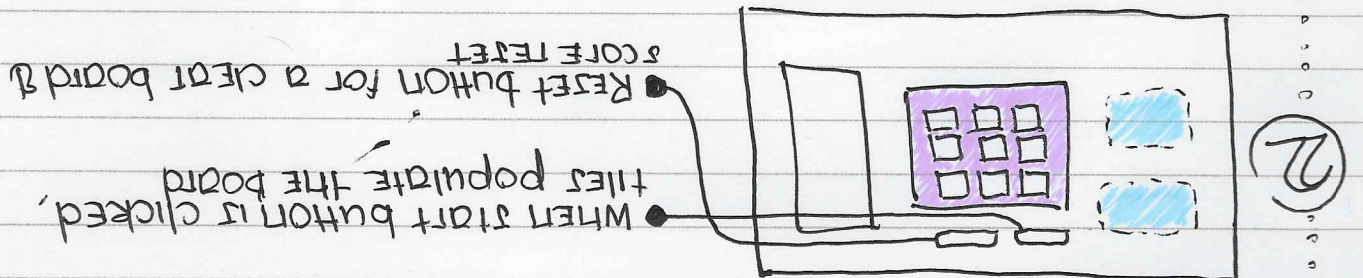 2
WHEN start button is clicked,
tiles populate the board
Reset button for a clear board &
score reset